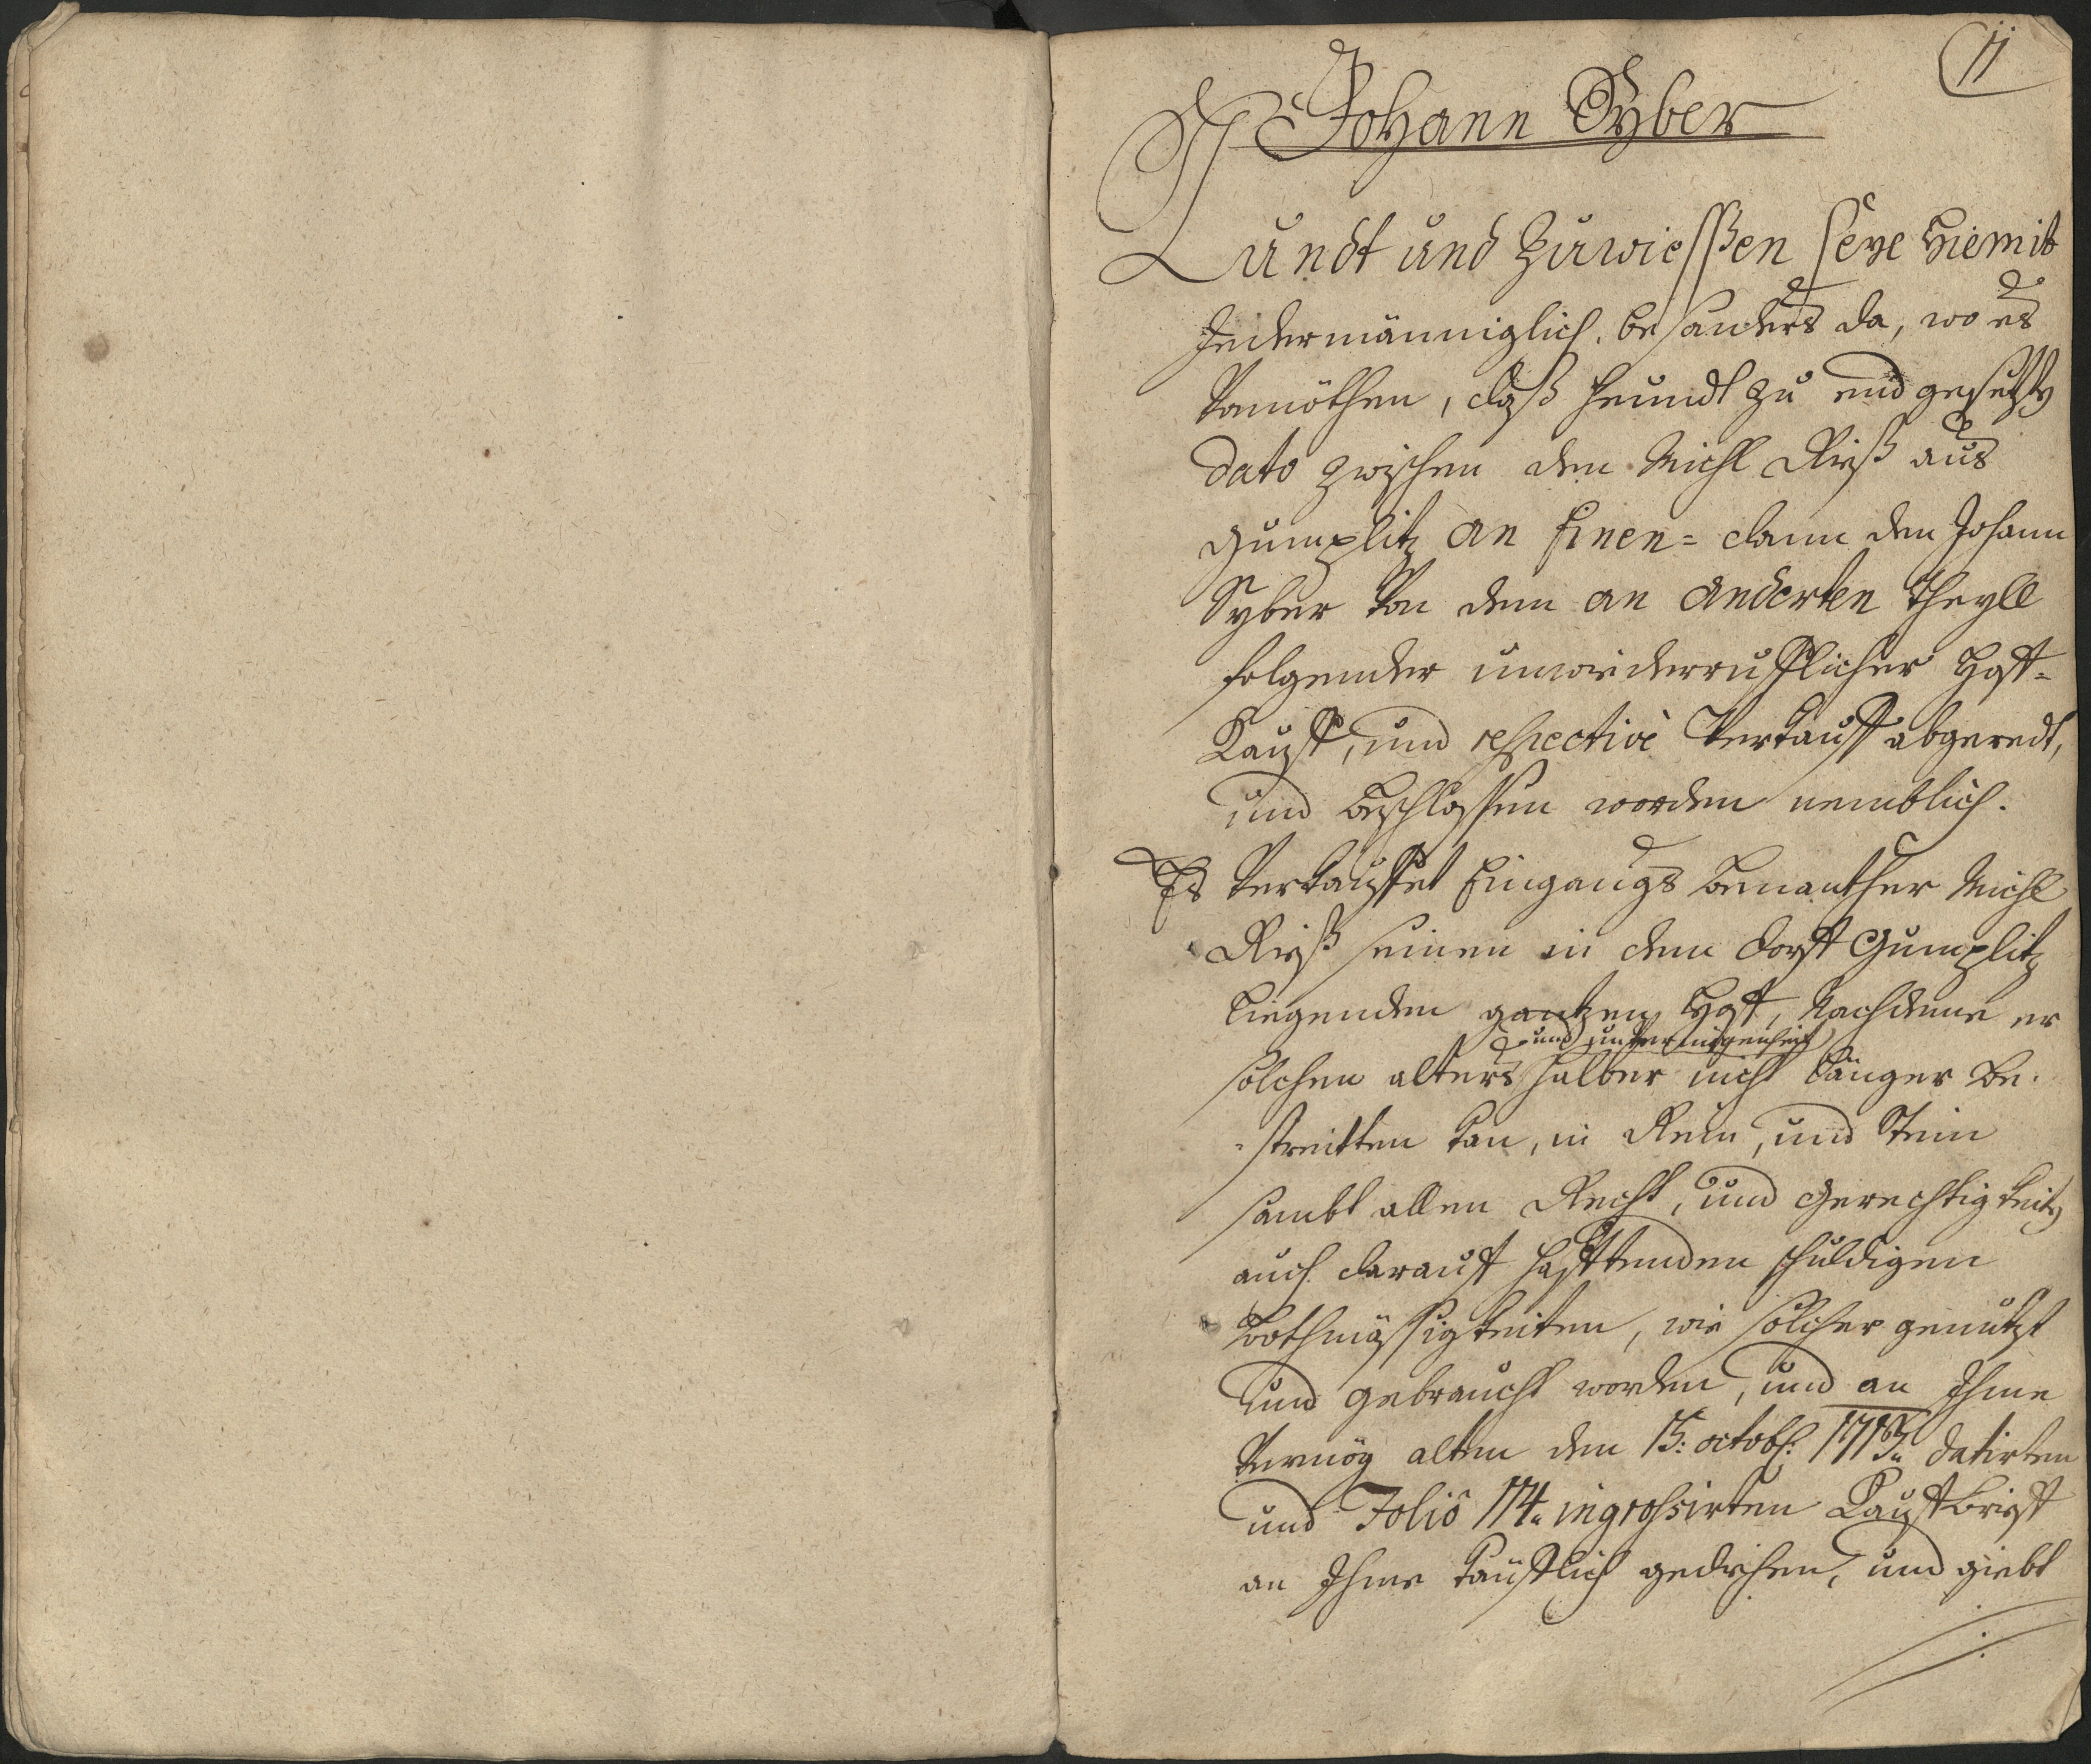 11
Johann Syber
Kundt und Zuwießen seye hiemit
Jedermänniglich, besonders da, wo es
Vonnöthen, daß heundt zu end gesetzten
dato zwischen den Michl Rieß aus
Gumplitz an Einen= dann den Johann
Syber von dem an Anderten Theyll
folgender unwiederrufflicher Hoff=
Kauff, und respectivè Verkauff abgeredt,
und beschlossen worden nemblich.
Es Verkauffet Eingangs benanther Michl
Rieß seinen in dem dorff Gumplitz
liegenden gantzen Hoff, Nachdeme er
und unvermögenheit
solchen alters halber nicht länger be-
-streitten kan, in Rein, und Stein
sambt allen Recht, und Gerechtigkeiten
auch darauff hafftenden schuldigen
Bothmässigkeiten, wie solcher genutzt
und gebraucht worden, und an Ihme
Vermög alten den 15: octobr: datirten
und Foliô 114. ingrossirten Kauffbrieff
an Ihme käufflich gediehen, und giebt